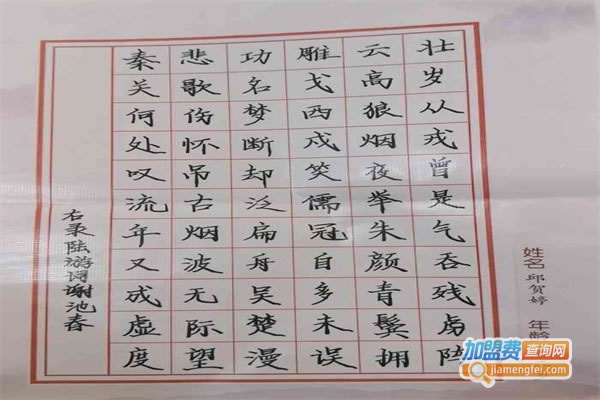 壮岁从戎曾是气吞残虏阵
云高狼烟夜举朱颜青鬓拥
雕戈西戍笑儒冠自多未误
功名梦断却泛扁舟吴楚漫
悲歌伤怀吊古烟波无际望
秦关何处叹流年又成虚度
右录陆游词谢池春
姓名 邱贺婷 年龄
加盟费查询网
jiamengfei.com